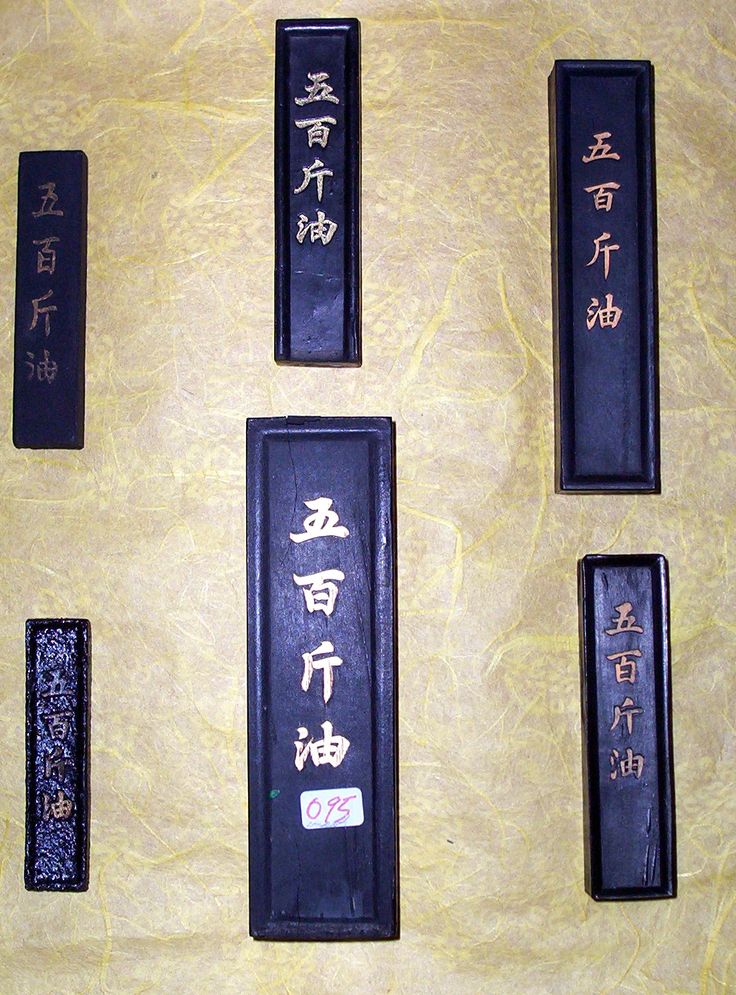 五百斤油
五百斤油
五百斤油
五百斤油
五百斤油
五百斤油
095